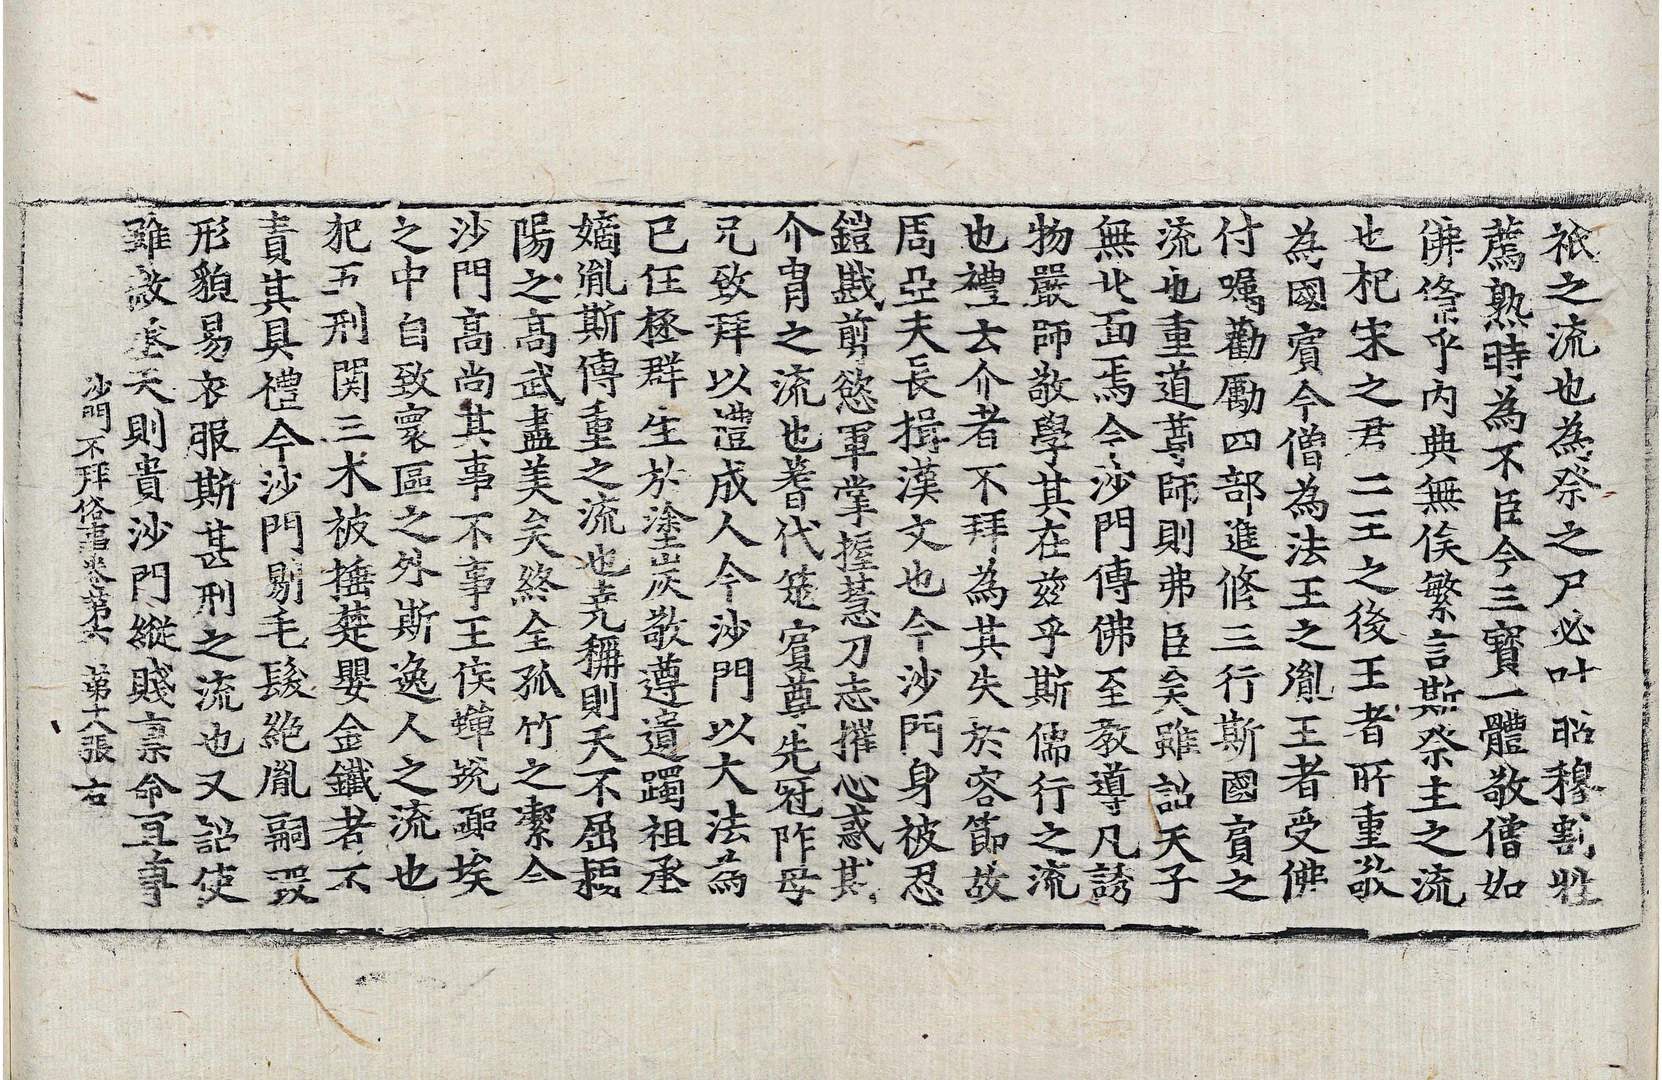 祇之流也為祭之尸必叶昭穆割牲
薦熟時為不臣今三寶一體敬僧如
佛俻乎內典無俟繁言斯祭主之流
也杞宋之君二王之後王者所重敬
為國賓今僧為法王之胤王者受佛
付囑勸勵四部進修三行斯國賓之
流也重道尊師則弗臣矣雖詔天子
無北面焉今沙門傳佛至教導凡誘
物嚴師敬學其在玆乎斯儒行之流
也禮云介者不拜為其失於容節故
周亞夫長揖漢文也今沙門身被忍
鎧戡剪慾軍掌握慧刀志摧心惑其
介胄之流也著代筵賓尊先冠阼母
兄致拜以禮成人今沙門以大法為
已任拯群生於塗炭敬遵遺躅祖承
嫡胤斯傳重之流也堯稱則天不屈穎
陽之高武盡美矣終全孤竹之潔今
沙門高尚其事不事王侯蟬蛻鄙埃
之中自致寰區之外斯逸人之流也
犯五刑關三木被捶楚嬰金鐵者不
責其具禮今沙門剔毛髮絕胤嗣毀
形貌易衣服斯甚刑之流也又詔使
雖微承天則貴沙門縱賤稟命宜尊
沙門不拜俗事卷第六　第十八張　右